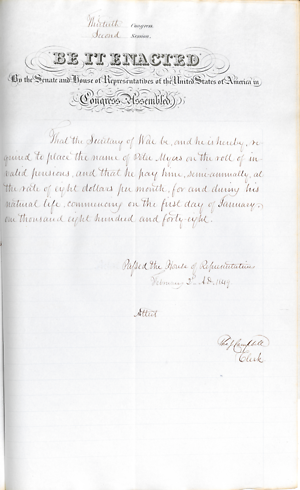 Thirtieth Congress
Second Session.
BE IT ENACTED
By the Senate and House of Representatives of the United States of America in
Congress Assembled,
That the Secretary of War be, and he is hereby, re-
quired to place the name of Myers on the roll of in-
valid pensions, and that he pay him, semi-annually, at
the rate of eight dollars per month, for and during his
natural life, commencing on the first day of January,
one thousand eight hundred and forty-eight.
Passed the House of Representatives
February A.D. 1849
Attest
Campbell
Clerk